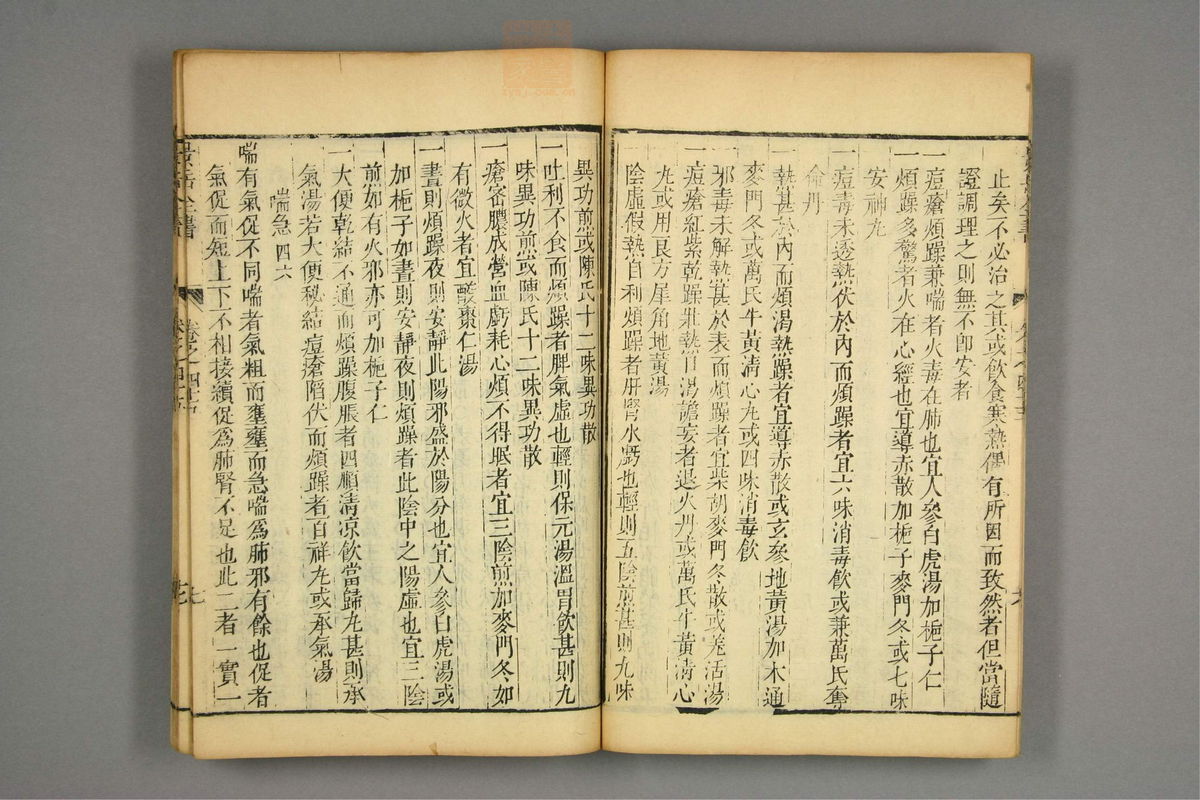 止矣不必治之其或飲食寒熱偶有所因而致然者但當隨
證調理之則無不卽安者
一痘瘡煩躁兼喘者火毒在肺也宜人參白虎湯加梔子仁
一煩躁多驚者火在心經也宜導赤散加梔子麥門冬或七味
安神丸
一痘毒未透熱伏於內而煩躁者宜六味消毒飲或兼萬氏奪
命丹
一熱甚於內而煩渴熱躁者宜導赤散或玄參地黃湯加木通
麥門冬或萬氏牛黃清心丸或四味消毒飲
一邪毒未解熱甚於表而煩躁者宜柴胡麥門冬散或羌活湯
一痘瘡紅紫乾躁壯熱口渴譫妄者退火丹或萬氏牛黃清心
丸或用良方犀角地黃湯
一陰虛假熱自利煩躁者肝腎水虧也輕則五陰煎甚則九味
異功煎或陳氏十二味異功散
一吐利不食而煩躁者脾氣虛也輕則保元湯溫胃飲甚則九
味異功煎或陳氏十二味異功散
一瘡密膿成營血虧耗心煩不得眠者宜三陰煎加麥門冬如
有微火者宜酸棗仁湯
一晝則煩躁夜則安靜此陽邪盛於陽分也宜人參白虎湯或
加梔子如晝則安靜夜則煩躁者此陰中之陽虛也宜三陰
煎如有火邪亦可加梔子仁
一大便乾結不通而煩躁腹脹者四順清凉飲當歸丸甚則承
氣湯若大便秘結痘瘡陷伏而煩躁者百祥丸或承氣湯
喘急 四六
喘有氣促不同喘者氣粗而壅壅而急喘爲肺邪有餘也促者
氣促而短上下不相接續促爲肺腎不足也此二者一實一
景岳全書
卷之四十五
七